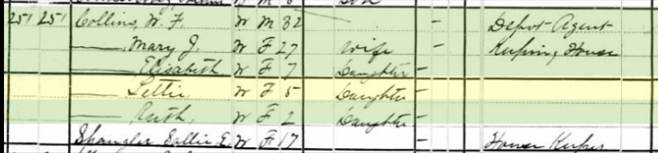 251 251 Collins, W. F. W M 32 Depot Agent
— Mary J. W F 27 Wife Keeping House
— Elisabeth W F 7 Daughter
— Lettie W F 5 Daughter
— Ruth W F 2 Daughter
Spangler Sallie E. W F 17 House Keeper